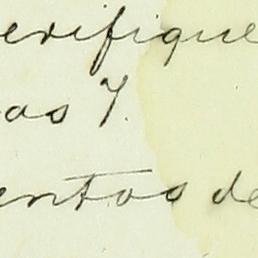 erifique
as 7.
entos de